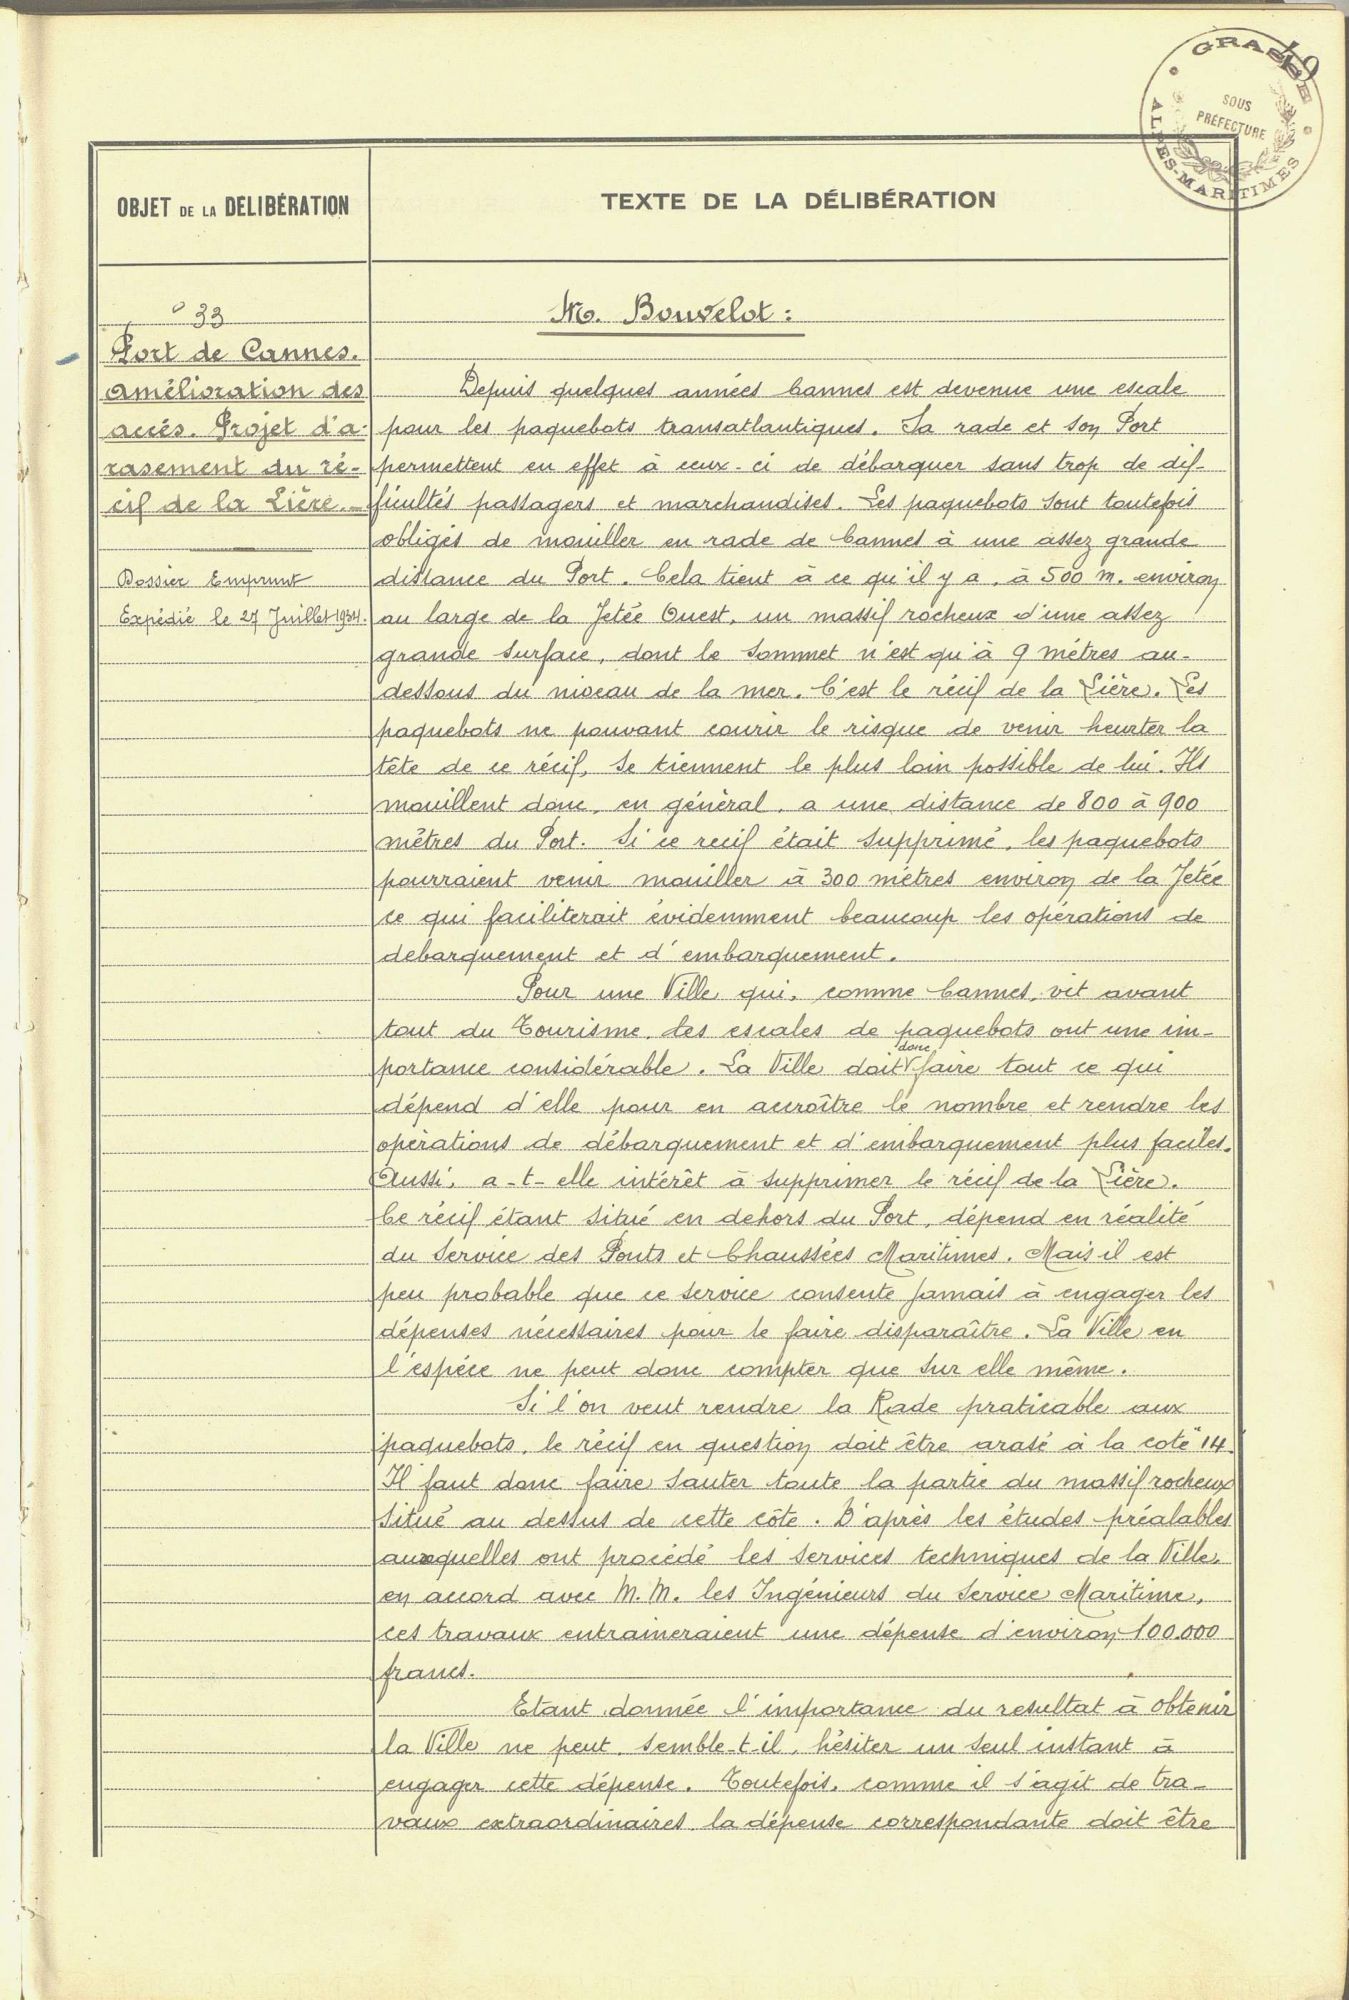 49
GRASSE
SOUS
PRÉFECTURE
ALPES-MARITIMES
OBJET DE LA DÉLIBÉRATION
TEXTE DE LA DÉLIBÉRATION
33
Port de Cannes.
Amélioration des
accés. Projet d'a-
rasement du ré-
cif de la Lière.
Dossier Emprunt
Expédié le 27 Juillet 1934.
M. Bouvelot :
Depuis quelques années Cannes est devenue une escale
pour les paquebots transatlantiques. Sa rade et son Port
permettent en effet à ceux-ci de débarquer sans trop de dif-
ficultés passagers et marchandises. Les paquebots sont toutefois
obligés de mouiller en rade de Cannes à une assez grande
distance du Port. Cela tient à ce qu'il y a, à 500 m. environ
au large de la Jetée Ouest, un massif rocheux d'une assez
grande surface, dont le sommet n'est qu'à 9 mètres au-
dessous du niveau de la mer. C'est le récif de la Lière. Les
paquebots ne pouvant courir le risque de venir heurter la
tête de ce récif, se tiennent le plus loin possible de lui. Ils
mouillent donc, en général, a une distance de 800 à 900
mètres du Port. Si ce recif était supprimé, les paquebots
pourraient venir mouiller à 300 mètres environ de la Jetée
ce qui faciliterait évidemment beaucoup les opérations de
debarquement et d'embarquement.
Pour une Ville qui, comme Cannes, vit avant
tout du Tourisme, les escales de paquebots ont une im-
portance considérable. La Ville doit donc faire tout ce qui
dépend d'elle pour en accroître le nombre et rendre les
opérations de débarquement et d'embarquement plus faciles.
Aussi, a-t-elle intérêt à supprimer le récif de la Lière.
Ce récif étant situé en dehors du Port, dépend en réalité
du Service des Ponts et Chaussées Maritimes. Mais il est
peu probable que ce service consente jamais à engager les
dépenses nécessaires pour le faire disparaître. La Ville en
l'espéce ne peut donc compter que sur elle même.
Si l'on veut rendre la Rade praticable aux
paquebots, le récif en question doit être arasé à la cote 14.
Il faut donc faire sauter toute la partie du massif rocheux
situé au dessus de cette côte. D'après les études préalables
auxquelles ont procédé les services techniques de la Ville,
en accord avec M.M. les Ingénieurs du Service Maritime,
ces travaux entraineraient une dépense d'environ 100.000
francs.
Etant donnée l'importance du resultat à obtenir
la Ville ne peut, semble-t-il, hésiter un seul instant à
engager cette dépense. Toutefois, comme il s'agit de tra-
vaux extraordinaires, la dépense correspondante doit être